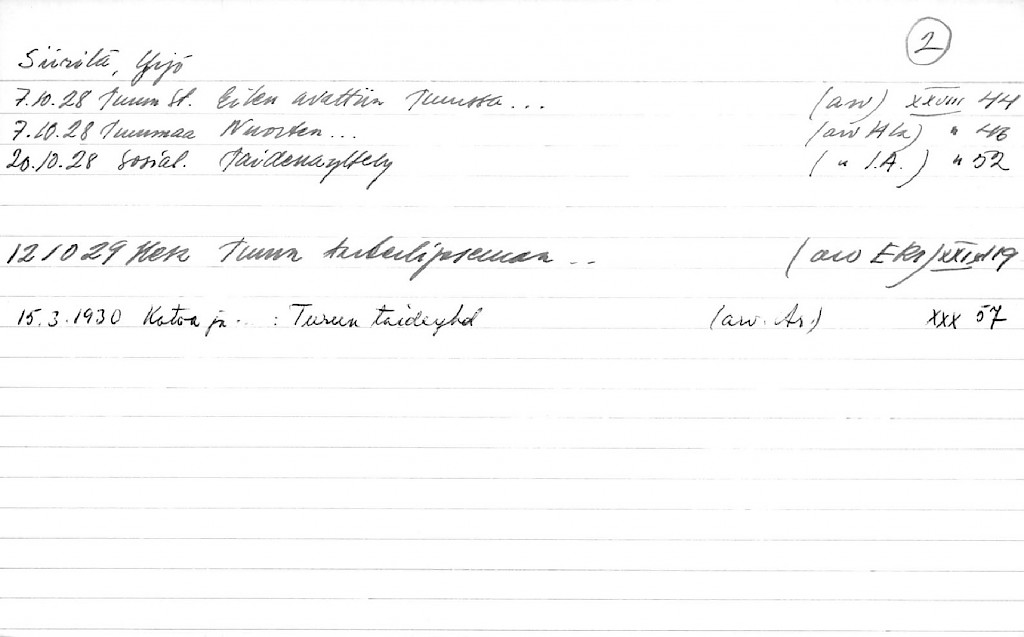 2
Siirilä, Yrjö
7.10.28 Turun St. Eilen avattiin Turussa ... (arv) XXVIII 44
7.10.28 Turunmaa Nuorten ... (arv Hla) " 46
20.10.28 Sosial. Taidenäyttely ( " I.A.) " 52
12 10 29 Turun taiteilijaseuran .. (arv EKr) 119
15.3.1930 Kotoa ja ... : Turun taideyhd (arv. Ar.) XXX 57